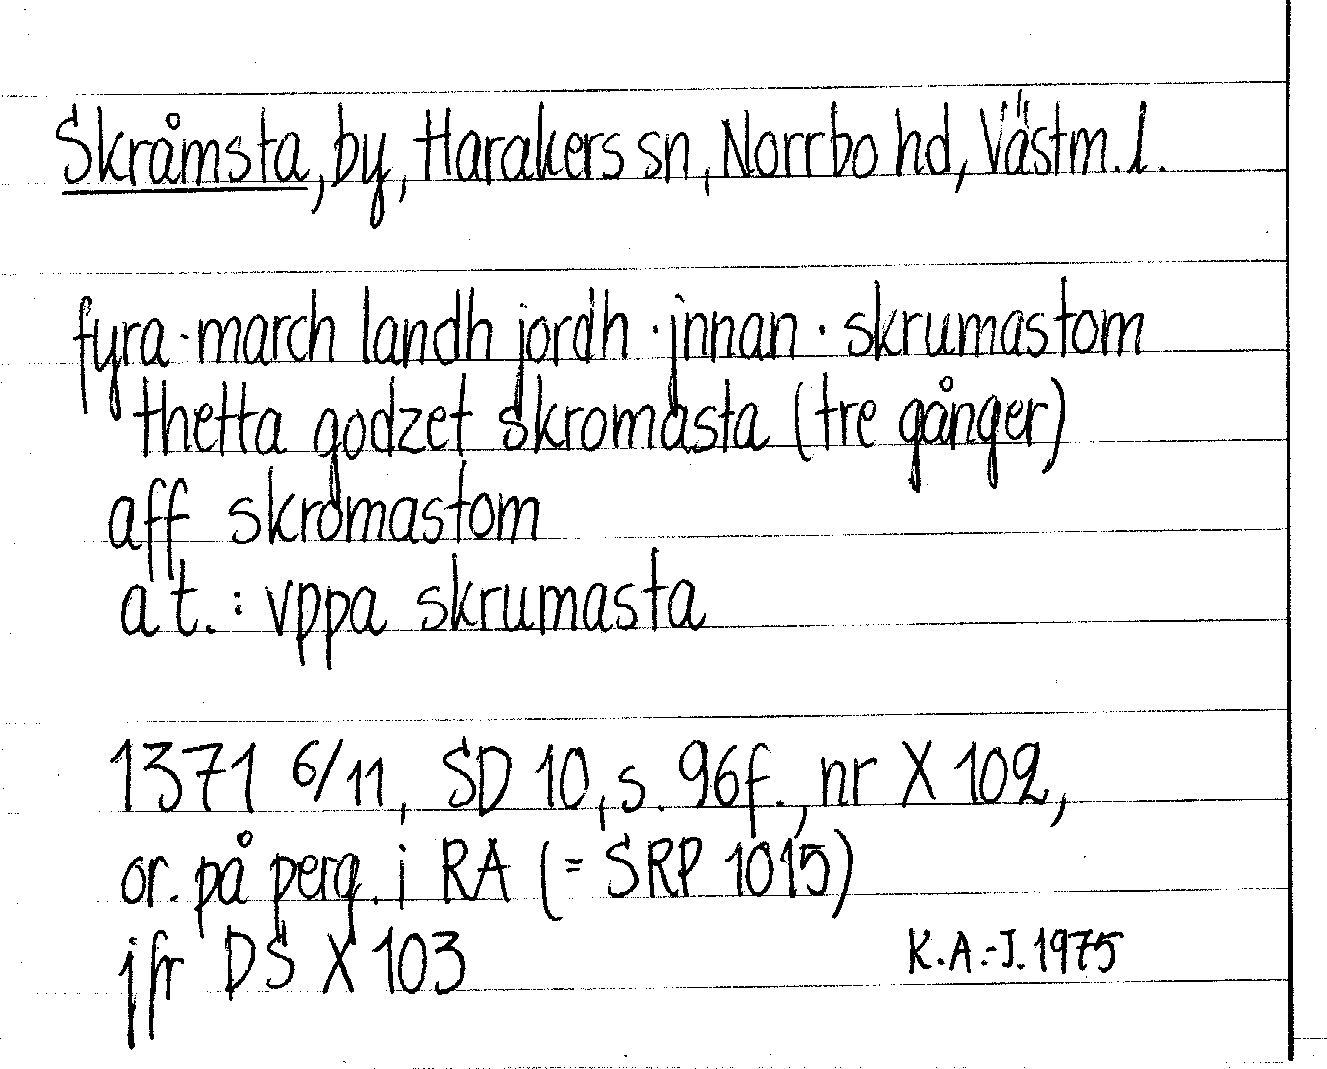 Skråmsta, by, Harakers sn, Norrbo hd, Västm. l.
fyra · march landh jordh · jnnan · skrumastom
thetta godzet skromasta (tre gånger)
aff skromastom
a t. : vppa skrumasta
1371 6/11, SD 10, s. 96f., nr X 102,
or. på perg. i RA (= SRP 1015)
jfr DS X 103
K.A.-J. 1975